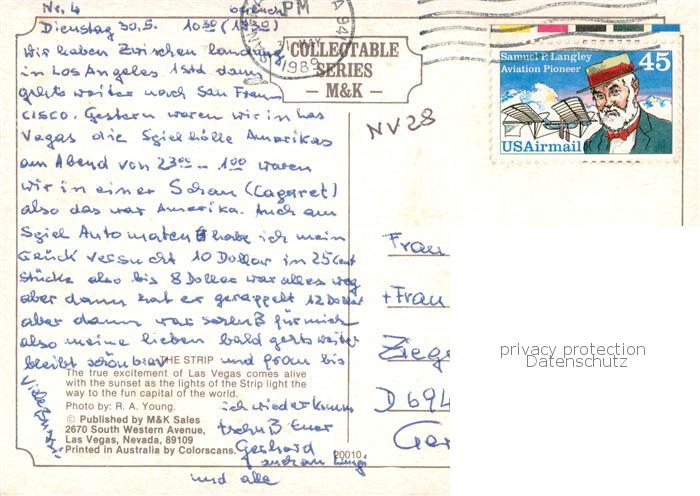 No. 4
Dienstag 30.5. 10 30 (19 30)
Wir haben Zwischen landung
in Los Angeles 1 Std dann
gehts weiter nach San Fran
cisco. Gestern waren wir in Las
Vegas die Spielhölle Amerikas
am Abend von 23 00 – 1 00 waren
wir in einer Schau (Cagaret)
also das war Amerika. Auch am
Spiel Automaten habe ich mein
Glück versucht 10 Dollar in 25 Cent
Stücke also bis 8 Dollar war alles weg
aber dann hat er gerappelt 12 Dollar
aber dann war schluß für mich
also meine lieben bald gehts weiter
bleibt schön brav und froh bis
ich wieder komm
Euer
Gerhard
und alle
THE STRIP
The true excitement of Las Vegas comes alive
with the sunset as the lights of the Strip light the
way to the fun capital of the world.
Photo by: R. A. Young.
© Published by M&K Sales
2670 South Western Avenue,
Las Vegas, Nevada, 89109
Printed in Australia by Colorscans.
20010
COLLECTABLE
SERIES
– M&K –
PM
1989
NV28
Samuel P. Langley
Aviation Pioneer
45
USAirmail
Frau
+ Frau
Ziege
D 694
Ger
privacy protection
Datenschutz